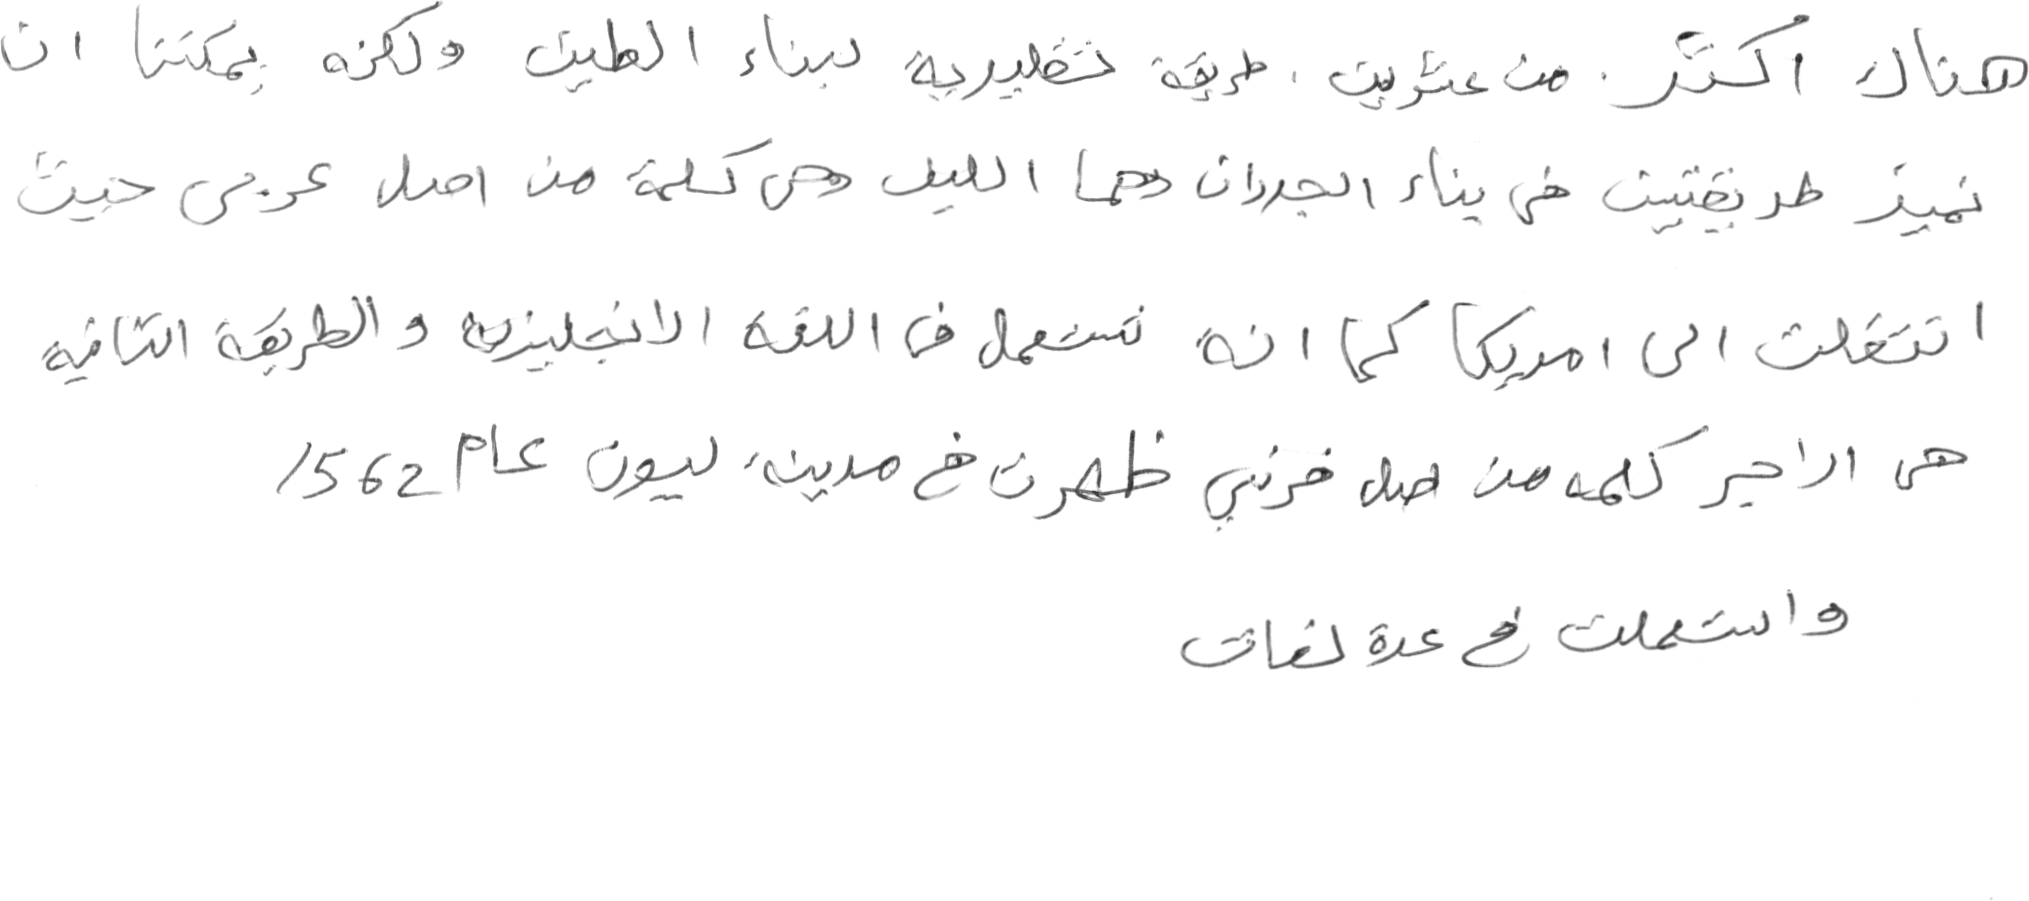 هناك أكثر من عشرين طريقة تقليدية لبناء الطين ولكنه يمكننا ان
نميز طريقتين في بناء الجدران وهما الليف وهى كلمة من اصل عربى حيث
انتقلت الى امريكا كما انه تستعمل فى اللغه الانجليزيه والطريقة الثانيه
هى الاجير كلمه من اصل فرنسي ظهرت في مدينه ليون عام 1562
واستعملت في عدة لغات